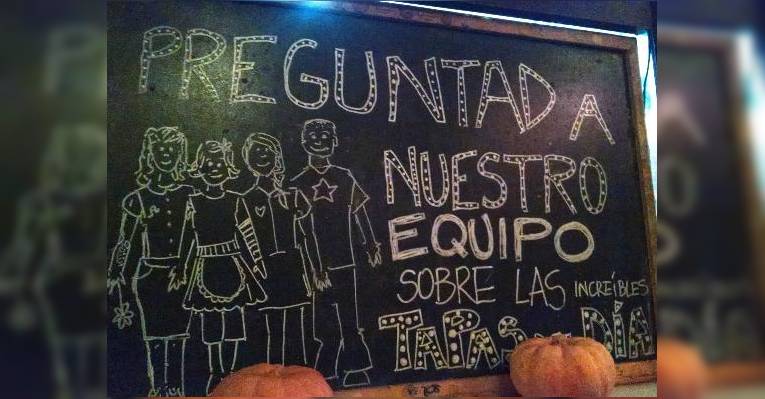 PREGUNTAD A
NUESTRO
EQUIPO
SOBRE LAS INCREÍBLES
TAPAS DÍA